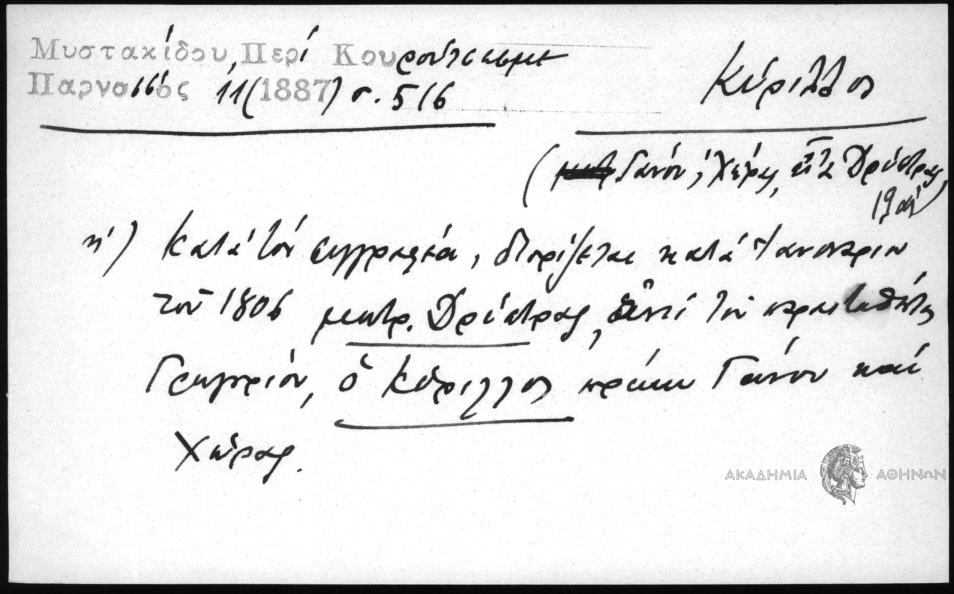 Μυστακίδου, Περί Κουρούτσεσμε
Παρνασσός 11 (1887) σ. 516
Κύριλλος
(Γάνου, Χώρας, εἶτα Δρύστρας,
19 αἰ
κατά τόν συγγραφέα, διορίζεται κατά Ἰανουάριον
τοῦ 1806 μητρ. Δρύστρας, ἀντί τοῦ παραιτηθέντος
Γρηγορίου, ὁ Κύριλλος πρώην Γάνου καί
Χώρας.
ΑΚΑΔΗΜΙΑ ΑΘΗΝΩΝ